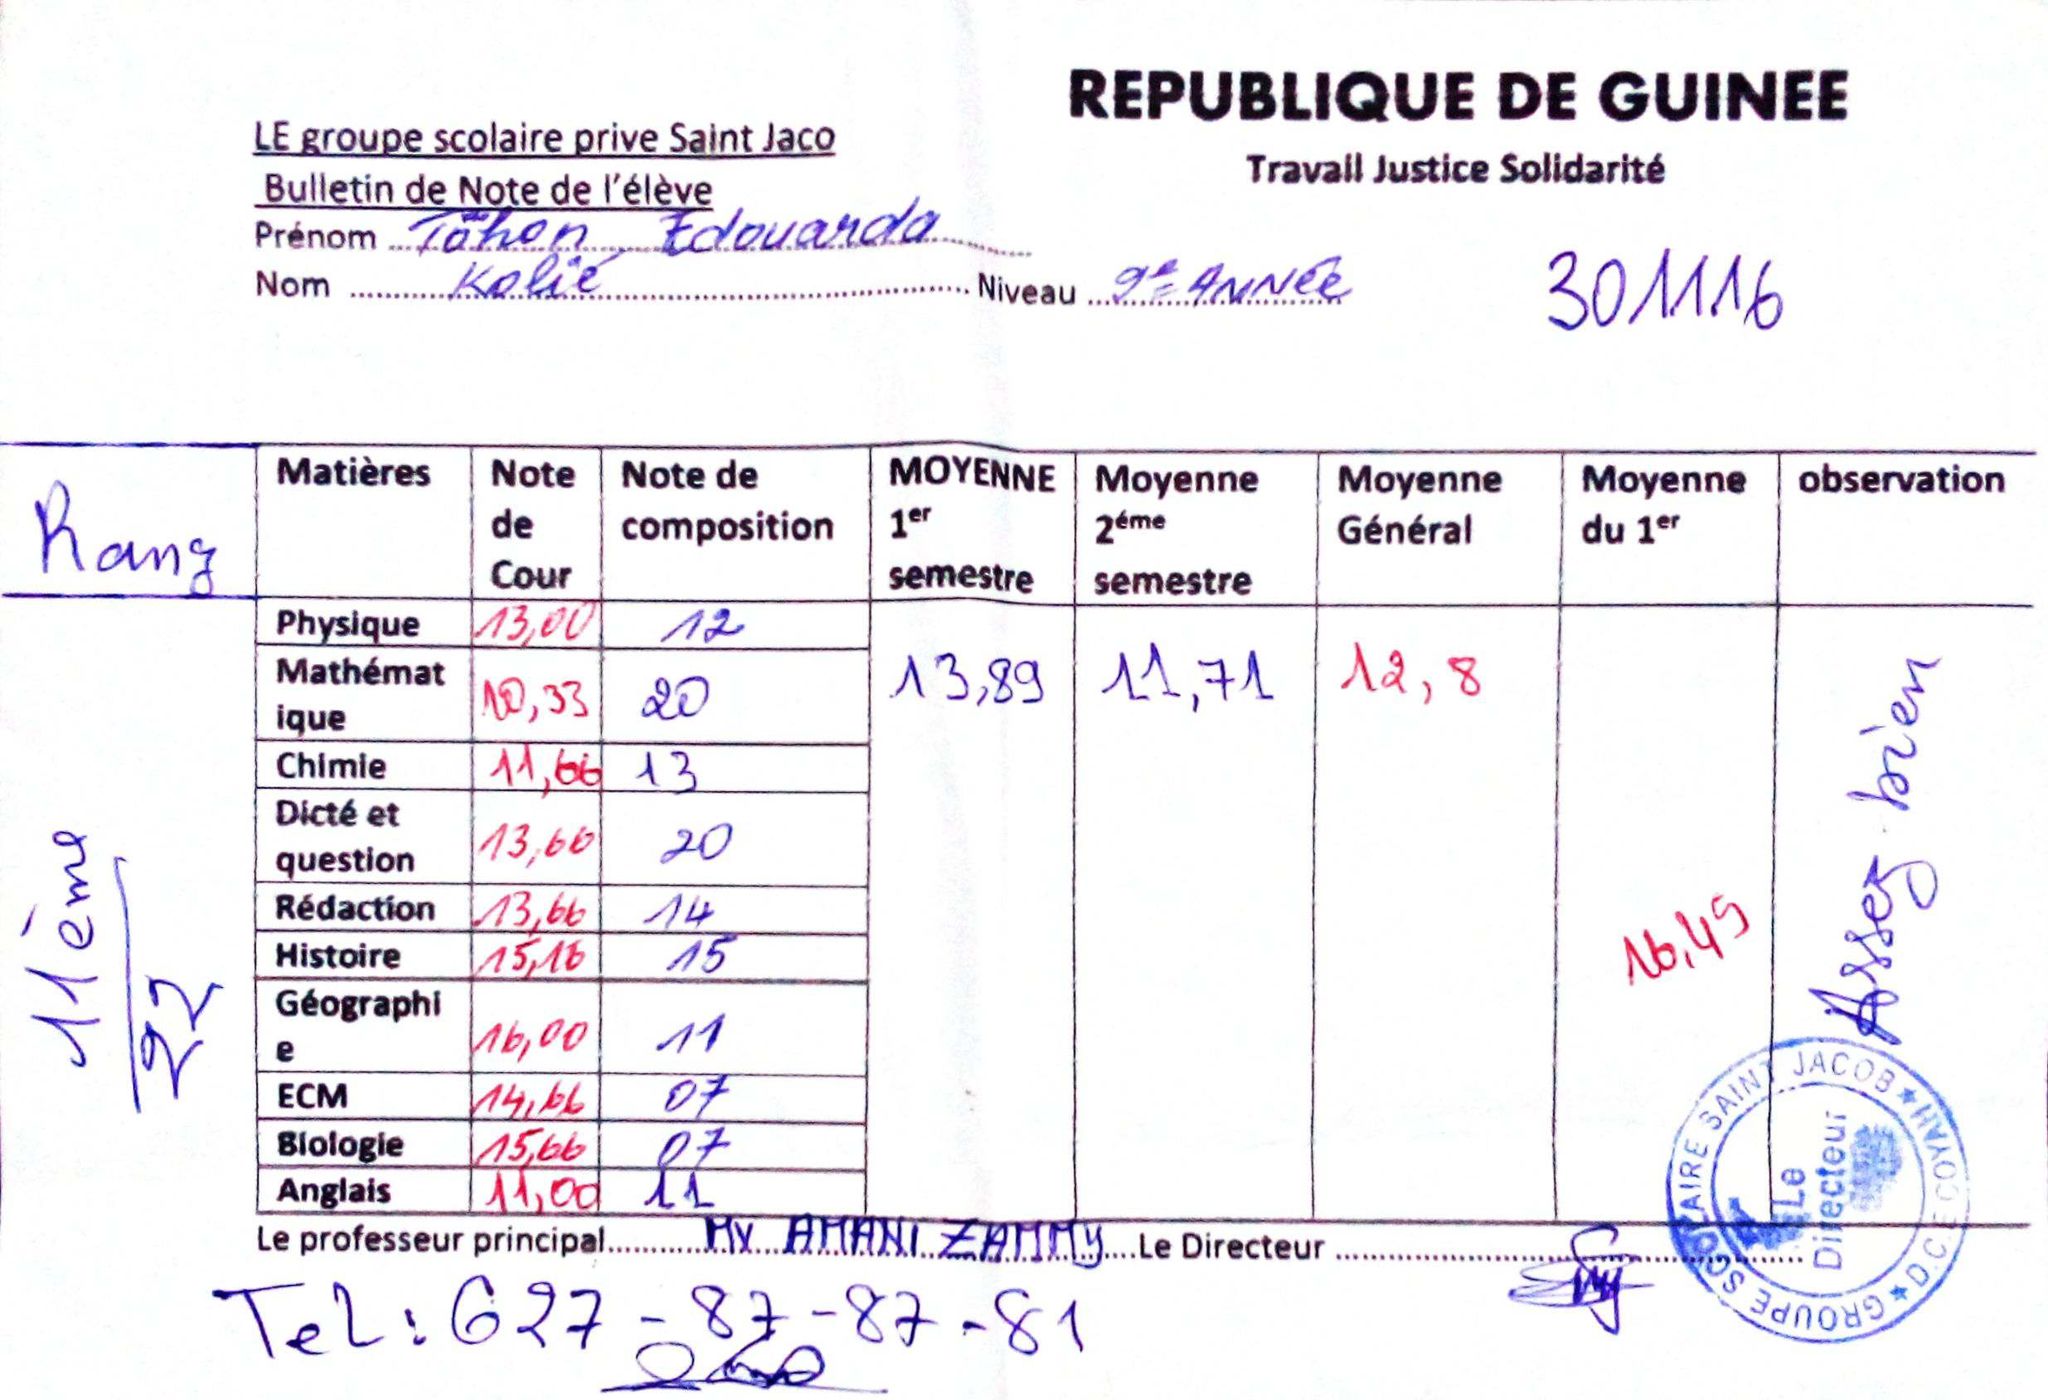 REPUBLIQUE DE GUINEE
Travail Justice Solidarité
LE groupe scolaire prive Saint Jaco
Bulletin de Note de l'élève
Prénom Tôhon Edouarda
Nom Kolié Niveau 9e ANNÉE
301116
Rang
Matières Note de Cour Note de composition MOYENNE 1er semestre Moyenne 2éme semestre Moyenne Général Moyenne du 1er observation
Physique 13,00 12
Mathématique 10,33 20
13,89 11,71 12,8
Chimie 11,66 13
Dicté et question 13,66 20
Rédaction 13,66 14
Histoire 15,16 15
Géographie 16,00 11
ECM 14,66 07
Biologie 15,66 07
Anglais 11,00 11
16,45
Assez bien
11ème
22
Le professeur principal Mr AMANI ZAMMY Le Directeur
GROUPE SCOLAIRE SAINT JACOB
Le Directeur
Tel : 627-87-87-81